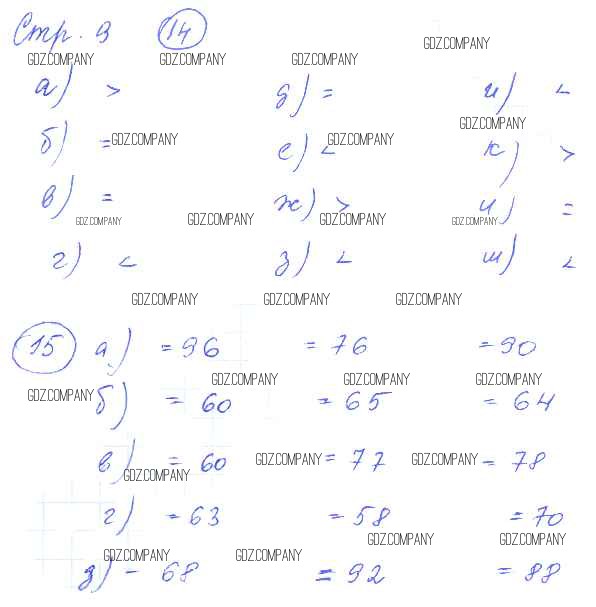 Стр. 9 14
GDZ.COMPANY
GDZ.COMPANY GDZ.COMPANY GDZ.COMPANY
а) > д) = и) <
GDZ.COMPANY
б) = GDZ.COMPANY е) < GDZ.COMPANY к) >
в) = ж) > л) =
GDZ.COMPANY GDZ.COMPANY GDZ.COMPANY GDZ.COMPANY
г) < з) < м) <
GDZ.COMPANY GDZ.COMPANY GDZ.COMPANY
15 а) = 96 = 76 = 90
GDZ.COMPANY GDZ.COMPANY GDZ.COMPANY
GDZ.COMPANY б) = 60 = 65 = 64
в) = 60 GDZ.COMPANY = 77 GDZ.COMPANY = 78
GDZ.COMPANY
г) = 63 = 58 = 70
GDZ.COMPANY GDZ.COMPANY
GDZ.COMPANY GDZ.COMPANY
д) = 68 = 92 = 88